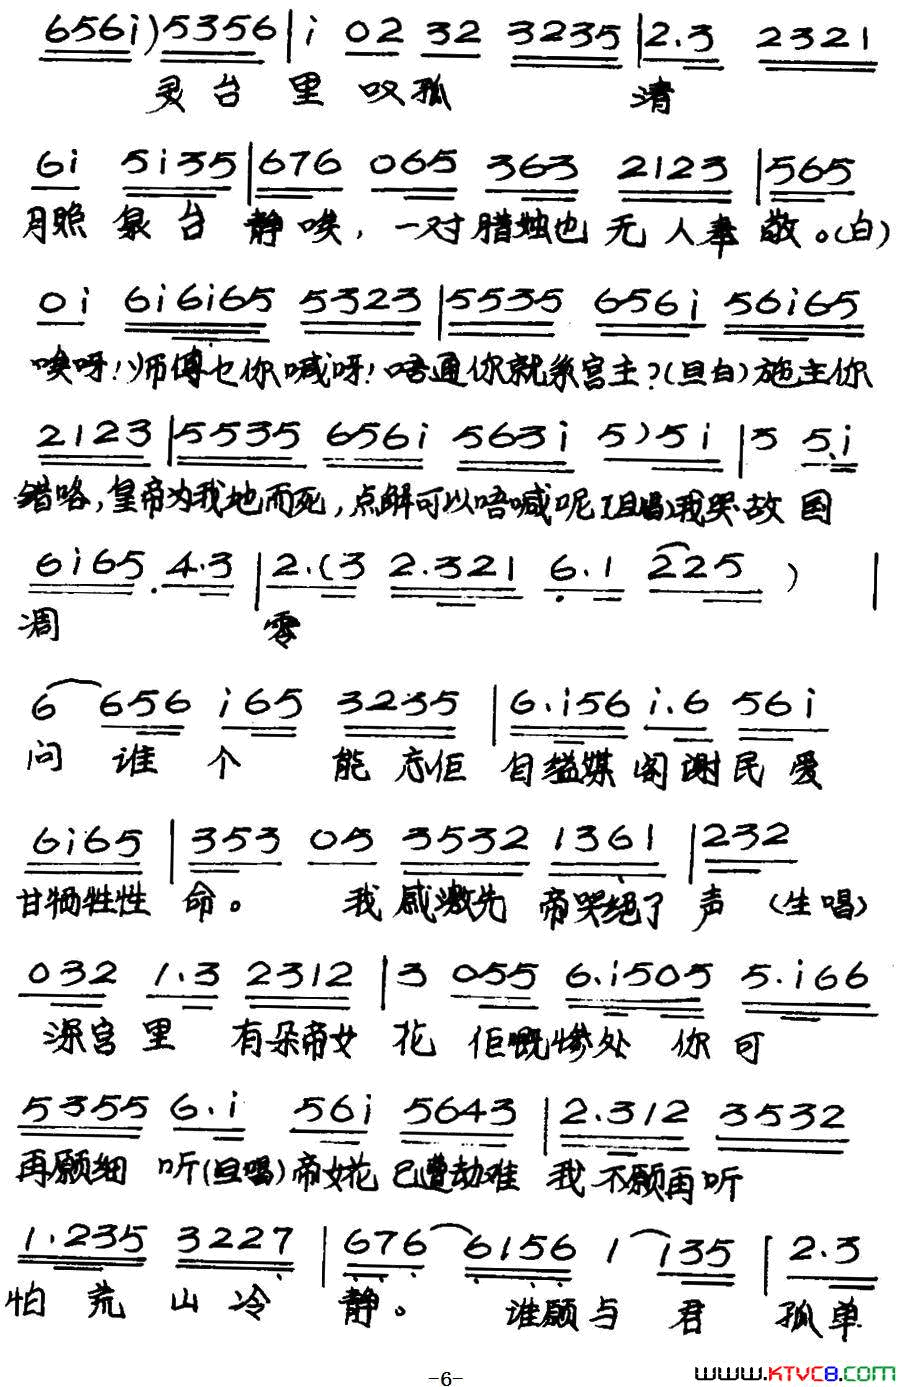 656i)5356|i 02 32 3235|2.3 2321
灵台里叹孤 清
6i 5i35|676 065 363 2123|565
月照泉台静唉，一对腊烛也无人奉敬。(白)
0i 6i6i65 5323|5535 656i 56i65
唉呀!师傅乜你喊呀!唔通你就系宫主?(旦白)施主你
2123|5535 656i 563i 5)5i|3 5.i
错咯,皇帝为我地而死,点解可以唔喊呢(旦唱)我哭故国
6i65.4.3|2.(3 2.321 6.1 225 )|
凋 零
6 656 i65 3235|6.i56 i.6 56i
问谁个 能忘佢自缢媒阁谢民爱
6i65|353 05 3532 1361|232
甘牺牲性命。 我感激先帝哭绝了声(生唱)
032 1.3 2312|3 055 6.i505 5.i66
深宫里 有朵帝女花佢嘅惨处 你可
5355 6.i 56i 5643|2.312 3532
再愿细 听(旦唱)帝女花已遭劫难 我不愿再听
1.235 3227|676 6156 1 135|2.3
怕荒山冷 静。 谁愿与君 孤单
-6-
www.KTVC8.COM